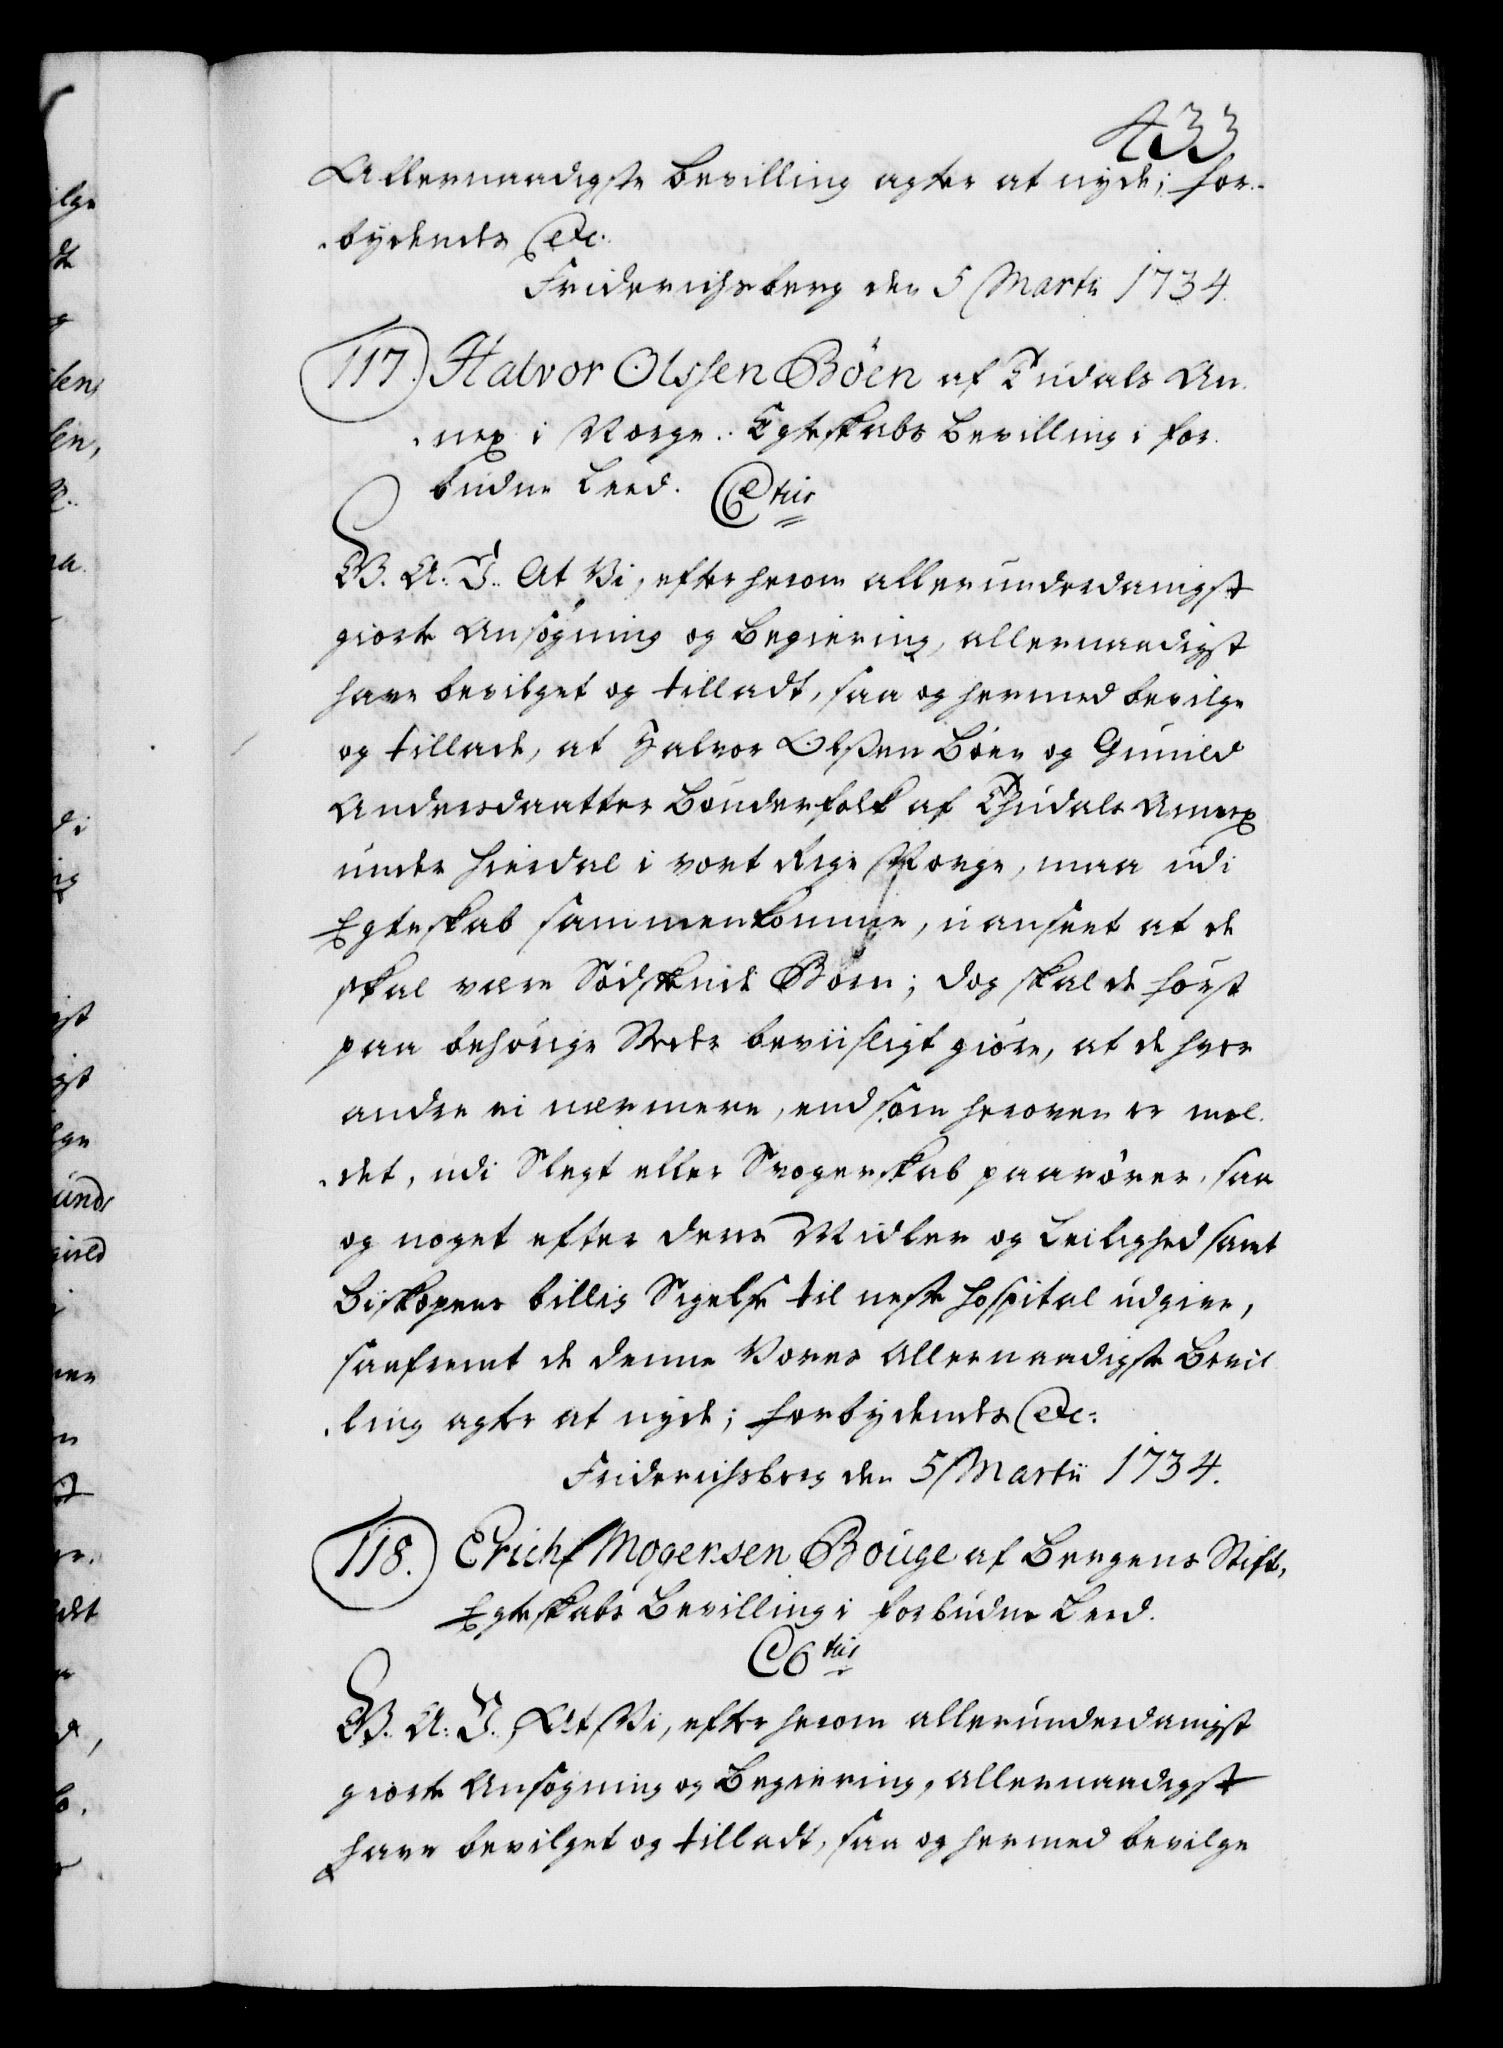 433
Allernaadigste Bevilling agter at nyde; for-
bydendes etc:
Friderichsberg den 5 Martii 1734.
117. Halvor Olssen Böen af Tudals An-
nex i Norge. Egteskabs Bevilling i for-
budne Leed. C6 tiis
G. A. V. At Vi, efter herom allerunderdanigst
giorte Ansøgning og Begiering, allernaadigst
have bevilget og tilladt, saa og hermed bevilge
og tillade, at Halvor Olssen Böen og Gunild
Andersdaatter Bönderfolk af Tudals Annex
under Hierdal i vort Rige Norge, maa udi
Egteskab sammenkomme, uanseet at de
skal være Södskende Börn; dog skal de først
paa behörige Steder beviisligt giöre, at de hver-
andre ei nærmere, end som heroven er mel-
det, udi Slegt eller Svogerskab paarörer, saa
og noget efter deres Midler og Leilighed samt
Biskopens billig Sigelse til neste Hospital udgive,
saafremt de denne Vores Allernaadigste Bevil-
ling agter at nyde; forbydendes etc:
Friderichsberg den 5 Martii 1734.
118. Erich Mogensen Bouge af Bergens Stift,
Egteskabs Bevilling i forbudne Leed.
C6 tiis
G. A. V. At Vi, efter herom allerunderdanigst
giorte Ansøgning og Begiering, allernaadigst
have bevilget og tilladt, saa og hermed bevilge